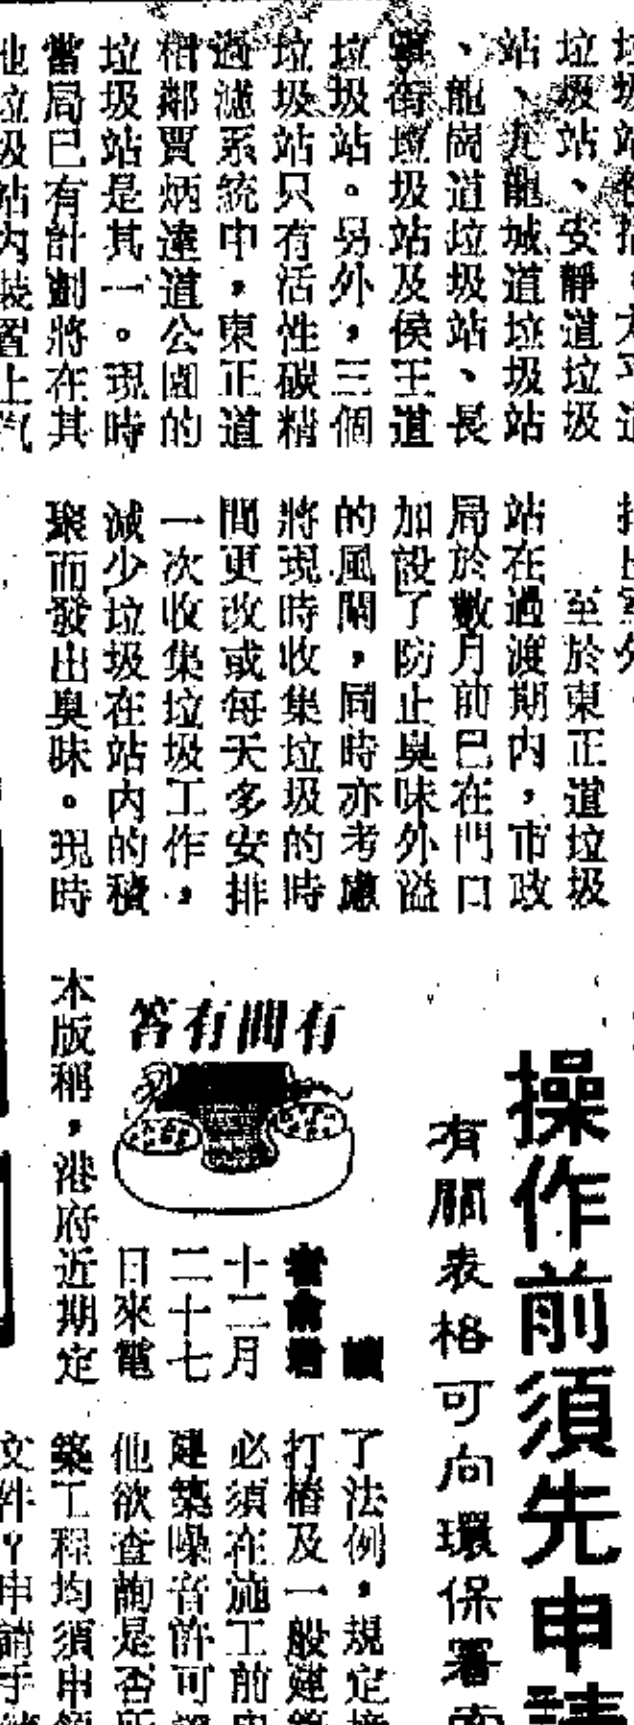 垃圾站、安靜道垃圾
站、九龍城道垃圾站
、龍崗道垃圾站、長
街垃圾站及侯王道
垃圾站。另外，三個
垃圾站只有活性碳精
過濾系統中，東正道
相鄰賈炳達道公園的
垃圾站是其一。現時
當局已有計劃將在其
他垃圾站內裝置上汽
至於東正道垃圾
站在過渡期內，市政
局於數月前已在門口
加設了防止臭味外溢
的風閘，同時亦考慮
將現時收集垃圾的時
間更改或每天多安排
一次收集垃圾工作，
減少垃圾在站內的積
聚而發出臭味。現時
操作前須先申請
有關表格可向環保署
有問有答
讀
者俞君
十二月
二十七
日來電
本版稱，港府近期定
了法例，規定
打樁及一般建築
必須在施工前
建築噪音許可
他欲查詢是否所
築工程均須申領
文件？申請手